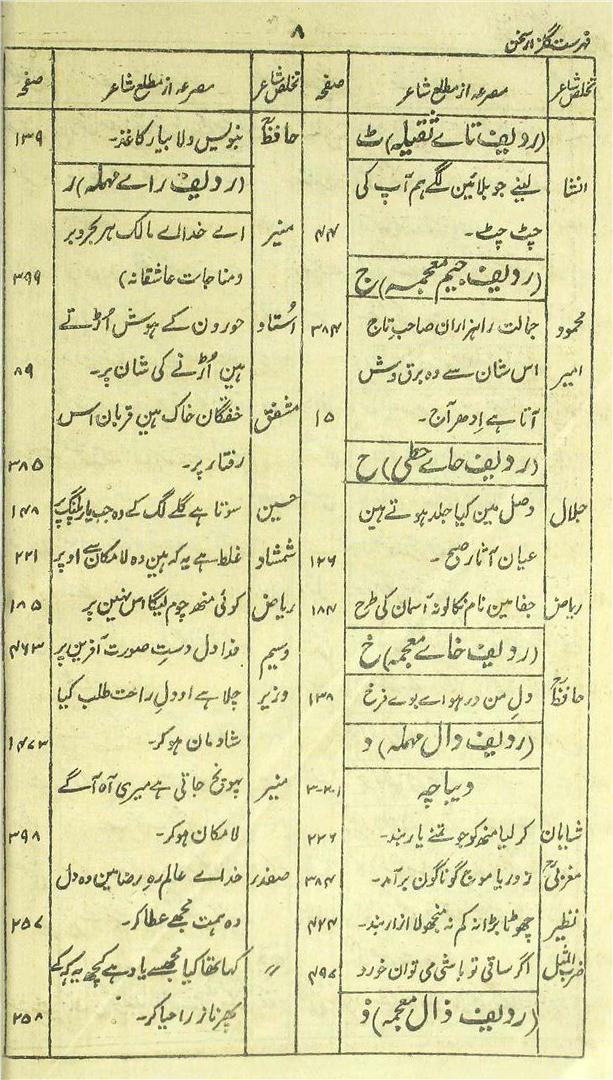 ۸
فہرست گلزار سخن
تخلص شاعر
مصرعہ از مطلع شاعر
صفحہ
(ردیف تاے ثقیلہ) ٹ
انشا
لینے جو بلائین لگے ہم آپ کی
چٹ چٹ۔
۴۴
(ردیف جیم معجمہ) ج
محمود
جمالت را ہزاران صاحب تاج
۳۸۴
امیر
اس شان سے وہ برق وش
آتا ہے اِدھر آج۔
۱۵
(ردیف حاے حطی) ح
جلال
وصل مین کیا جلد ہوتے ہین
عیان آثار صبح۔
۱۲۶
ریاض
جفا مین نام نکالو نہ آسمان کی طرح
۱۸۴
(ردیف خاے معجمہ) خ
حافظؒ
دلِ من در ہواے روے فرخ
۱۳۸
(ردیف دال مہملہ) د
دیباچہ
۱-۲-۳
شایان
کر لیا منھ کو جو تمنے یار بند۔
۲۲۶
مغربیؒ
ز دریا موج گوناگون برآمد۔
۳۸۴
نظیر
چھوٹا بڑا نہ کم نہ منجھولا ازار بند۔
۴۲۴
ضرب المثل
اگر ساقی تو باشی می توان خورد
۴۹۶
(ردیف ذال معجمہ) ذ
تخلص شاعر
مصرعہ از مطلع شاعر
صفحہ
حافظؒ
بنویس دلا بیار کاغذ۔
۱۳۹
(ردیف راے مہملہ) ر
منیر
اے خداے مالک ہر بحر و بر
(مناجات عاشقانہ)
۳۹۹
اُستاد
حورون کے ہوش اُڑتے
ہین اُڑنے کی شان پر۔
۸۹
مشفق
خفتگان خاک ہین قربان اس
رفتار پر۔
۳۸۵
حسین
سوتا ہے گلے لگ کے وہ جب یار پلنگ پر
۱۴۸
شمشاد
غلط ہے یہ کہ ہین وہ لامکان سے اوپر
۲۲۱
ریاض
کوئی منھ چوم لیگا اس نہین پر
۱۸۵
وسیم
فدا دل دست صورت آفرین پر
۴۶۳
وزیر
چلا ہے او دل راحت طلب کیا
شادمان ہوکر۔
۴۷۳
منیر
پہونچ جاتی ہے میری آہ آگے
لامکان ہوکر۔
۳۹۸
صفدر
خداے عالم رہِ رضا مین وہ دل
وہ ہمت مجھے عطا کر۔
۲۵۷
〃
کہا تھا کیا مجھسے یاد ہے کچھ یہ کہہ کے
پھر ناز را حیا کر۔
۲۵۸